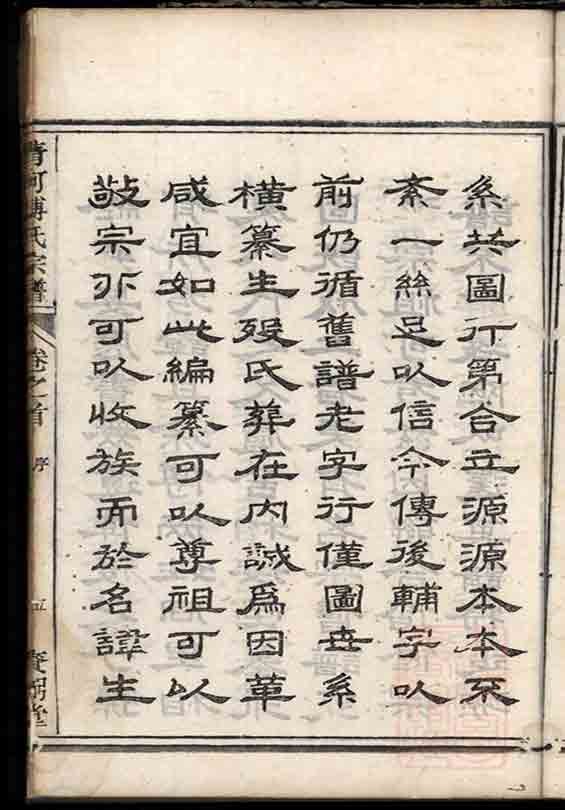 系共圖行第合立源源本本不
紊一絲足以信今傳後輔字以
前仍循舊譜老字行僅圖世系
橫纂生歿氏葬在内誠爲因革
咸宜如此編纂可以尊祖可以
敬宗亦可以收族而於名諱生
清河傅氏宗譜
卷之首
序
五